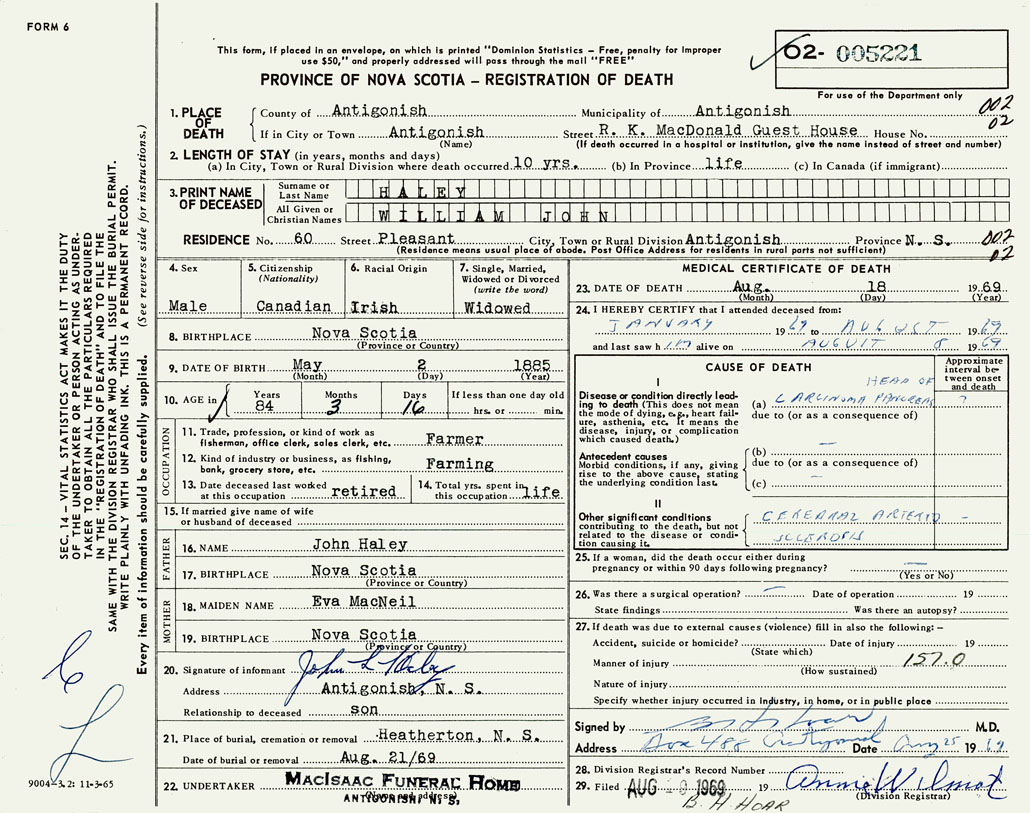 FORM 6
This form, if placed in an envelope, on which is printed "Dominion Statistics – Free, penalty for improper
use $50," and properly addressed will pass through the mail "FREE"
PROVINCE OF NOVA SCOTIA – REGISTRATION OF DEATH
02- 005221
For use of the Department only
1. PLACE OF DEATH
County of Antigonish Municipality of Antigonish 002
If in City or Town Antigonish Street R. K. MacDonald Guest House House No. 02
(Name) (If death occurred in a hospital or institution, give the name instead of street and number)
2. LENGTH OF STAY (in years, months and days)
(a) In City, Town or Rural Division where death occurred 10 yrs. (b) In Province life (c) In Canada (if immigrant)
3. PRINT NAME OF DECEASED
Surname or Last Name HALEY
All Given or Christian Names WILLIAM JOHN
RESIDENCE No. 60 Street Pleasant City, Town or Rural Division Antigonish Province N. S. 002
(Residence means usual place of abode. Post Office Address for residents in rural parts not sufficient) 02
4. Sex
Male
5. Citizenship (Nationality)
Canadian
6. Racial Origin
Irish
7. Single, Married, Widowed or Divorced (write the word)
Widowed
8. BIRTHPLACE Nova Scotia
(Province or Country)
9. DATE OF BIRTH May 2 1885
(Month) (Day) (Year)
10. AGE in Years 84 Months 3 Days 16 If less than one day old hrs. or min.
OCCUPATION
11. Trade, profession, or kind of work as
fisherman, office clerk, sales clerk, etc. Farmer
12. Kind of industry or business, as fishing,
bank, grocery store, etc. Farming
13. Date deceased last worked
at this occupation retired
14. Total yrs. spent in
this occupation life
15. If married give name of wife
or husband of deceased
FATHER
16. NAME John Haley
17. BIRTHPLACE Nova Scotia
(Province or Country)
MOTHER
18. MAIDEN NAME Eva MacNeil
19. BIRTHPLACE Nova Scotia
(Province or Country)
20. Signature of informant John L Haley
Address Antigonish, N. S.
Relationship to deceased son
21. Place of burial, cremation or removal Heatherton, N. S.
Date of burial or removal Aug. 21/69
22. UNDERTAKER MACISAAC FUNERAL HOME
(Name and address)
ANTIGONISH, N. S.
MEDICAL CERTIFICATE OF DEATH
23. DATE OF DEATH Aug. 18 1969
(Month) (Day) (Year)
24. I HEREBY CERTIFY that I attended deceased from:
JANUARY 1969 to AUGUST 1969
and last saw him alive on AUGUST 8 1969
CAUSE OF DEATH
Approximate interval between onset and death
I
Disease or condition directly leading to death (This does not mean the mode of dying, e.g., heart failure, asthenia, etc. It means the disease, injury, or complication which caused death.)
HEAD OF
(a) CARCINOMA PANCREAS ?
due to (or as a consequence of)
Antecedent causes
Morbid conditions, if any, giving rise to the above cause, stating the underlying condition last.
(b) —
due to (or as a consequence of)
(c) —
II
Other significant conditions contributing to the death, but not related to the disease or condition causing it.
CEREBRAL ARTERIO -
SCLEROSIS
25. If a woman, did the death occur either during
pregnancy or within 90 days following pregnancy? —
(Yes or No)
26. Was there a surgical operation? — Date of operation 19
State findings Was there an autopsy?
27. If death was due to external causes (violence) fill in also the following: –
Accident, suicide or homicide? Date of injury 19
(State which)
Manner of injury 157.0
(How sustained)
Nature of injury
Specify whether injury occurred in Industry, in home, or in public place
Signed by M.D.
Address Box 488 Antigonish Date Aug 25 1969
28. Division Registrar's Record Number
29. Filed AUG 1969 19 Annie Wilmot
(Division Registrar)
B. H. HOAR
SEC. 14 – VITAL STATISTICS ACT MAKES IT THE DUTY
OF THE UNDERTAKER OR PERSON ACTING AS UNDER-
TAKER TO OBTAIN ALL THE PARTICULARS REQUIRED
IN THE "REGISTRATION OF DEATH" AND TO FILE THE
SAME WITH THE DIVISION REGISTRAR WHO SHALL ISSUE THE BURIAL PERMIT.
WRITE PLAINLY WITH UNFADING INK. THIS IS A PERMANENT RECORD.
Every item of information should be carefully supplied. (See reverse side for instructions.)
9004-3.2: 11-3-65